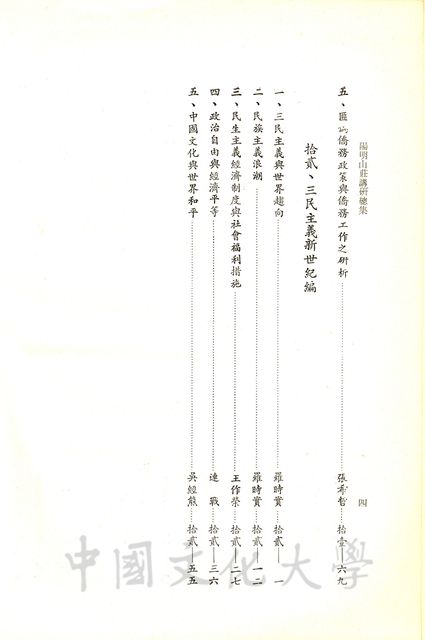 陽明山莊講研總集
四
五、匪偽僑務政策與僑務工作之研析……張希哲…拾壹—六九
拾貳、三民主義新世紀編
一、三民主義與世界趨向……羅時實…拾貳—一
二、民族主義浪潮……羅時實…拾貳—一二
三、民生主義經濟制度與社會福利措施……王作榮…拾貳—二七
四、政治自由與經濟平等……連戰…拾貳—三六
五、中國文化與世界和平……吳經熊…拾貳—五五
中國文化大學